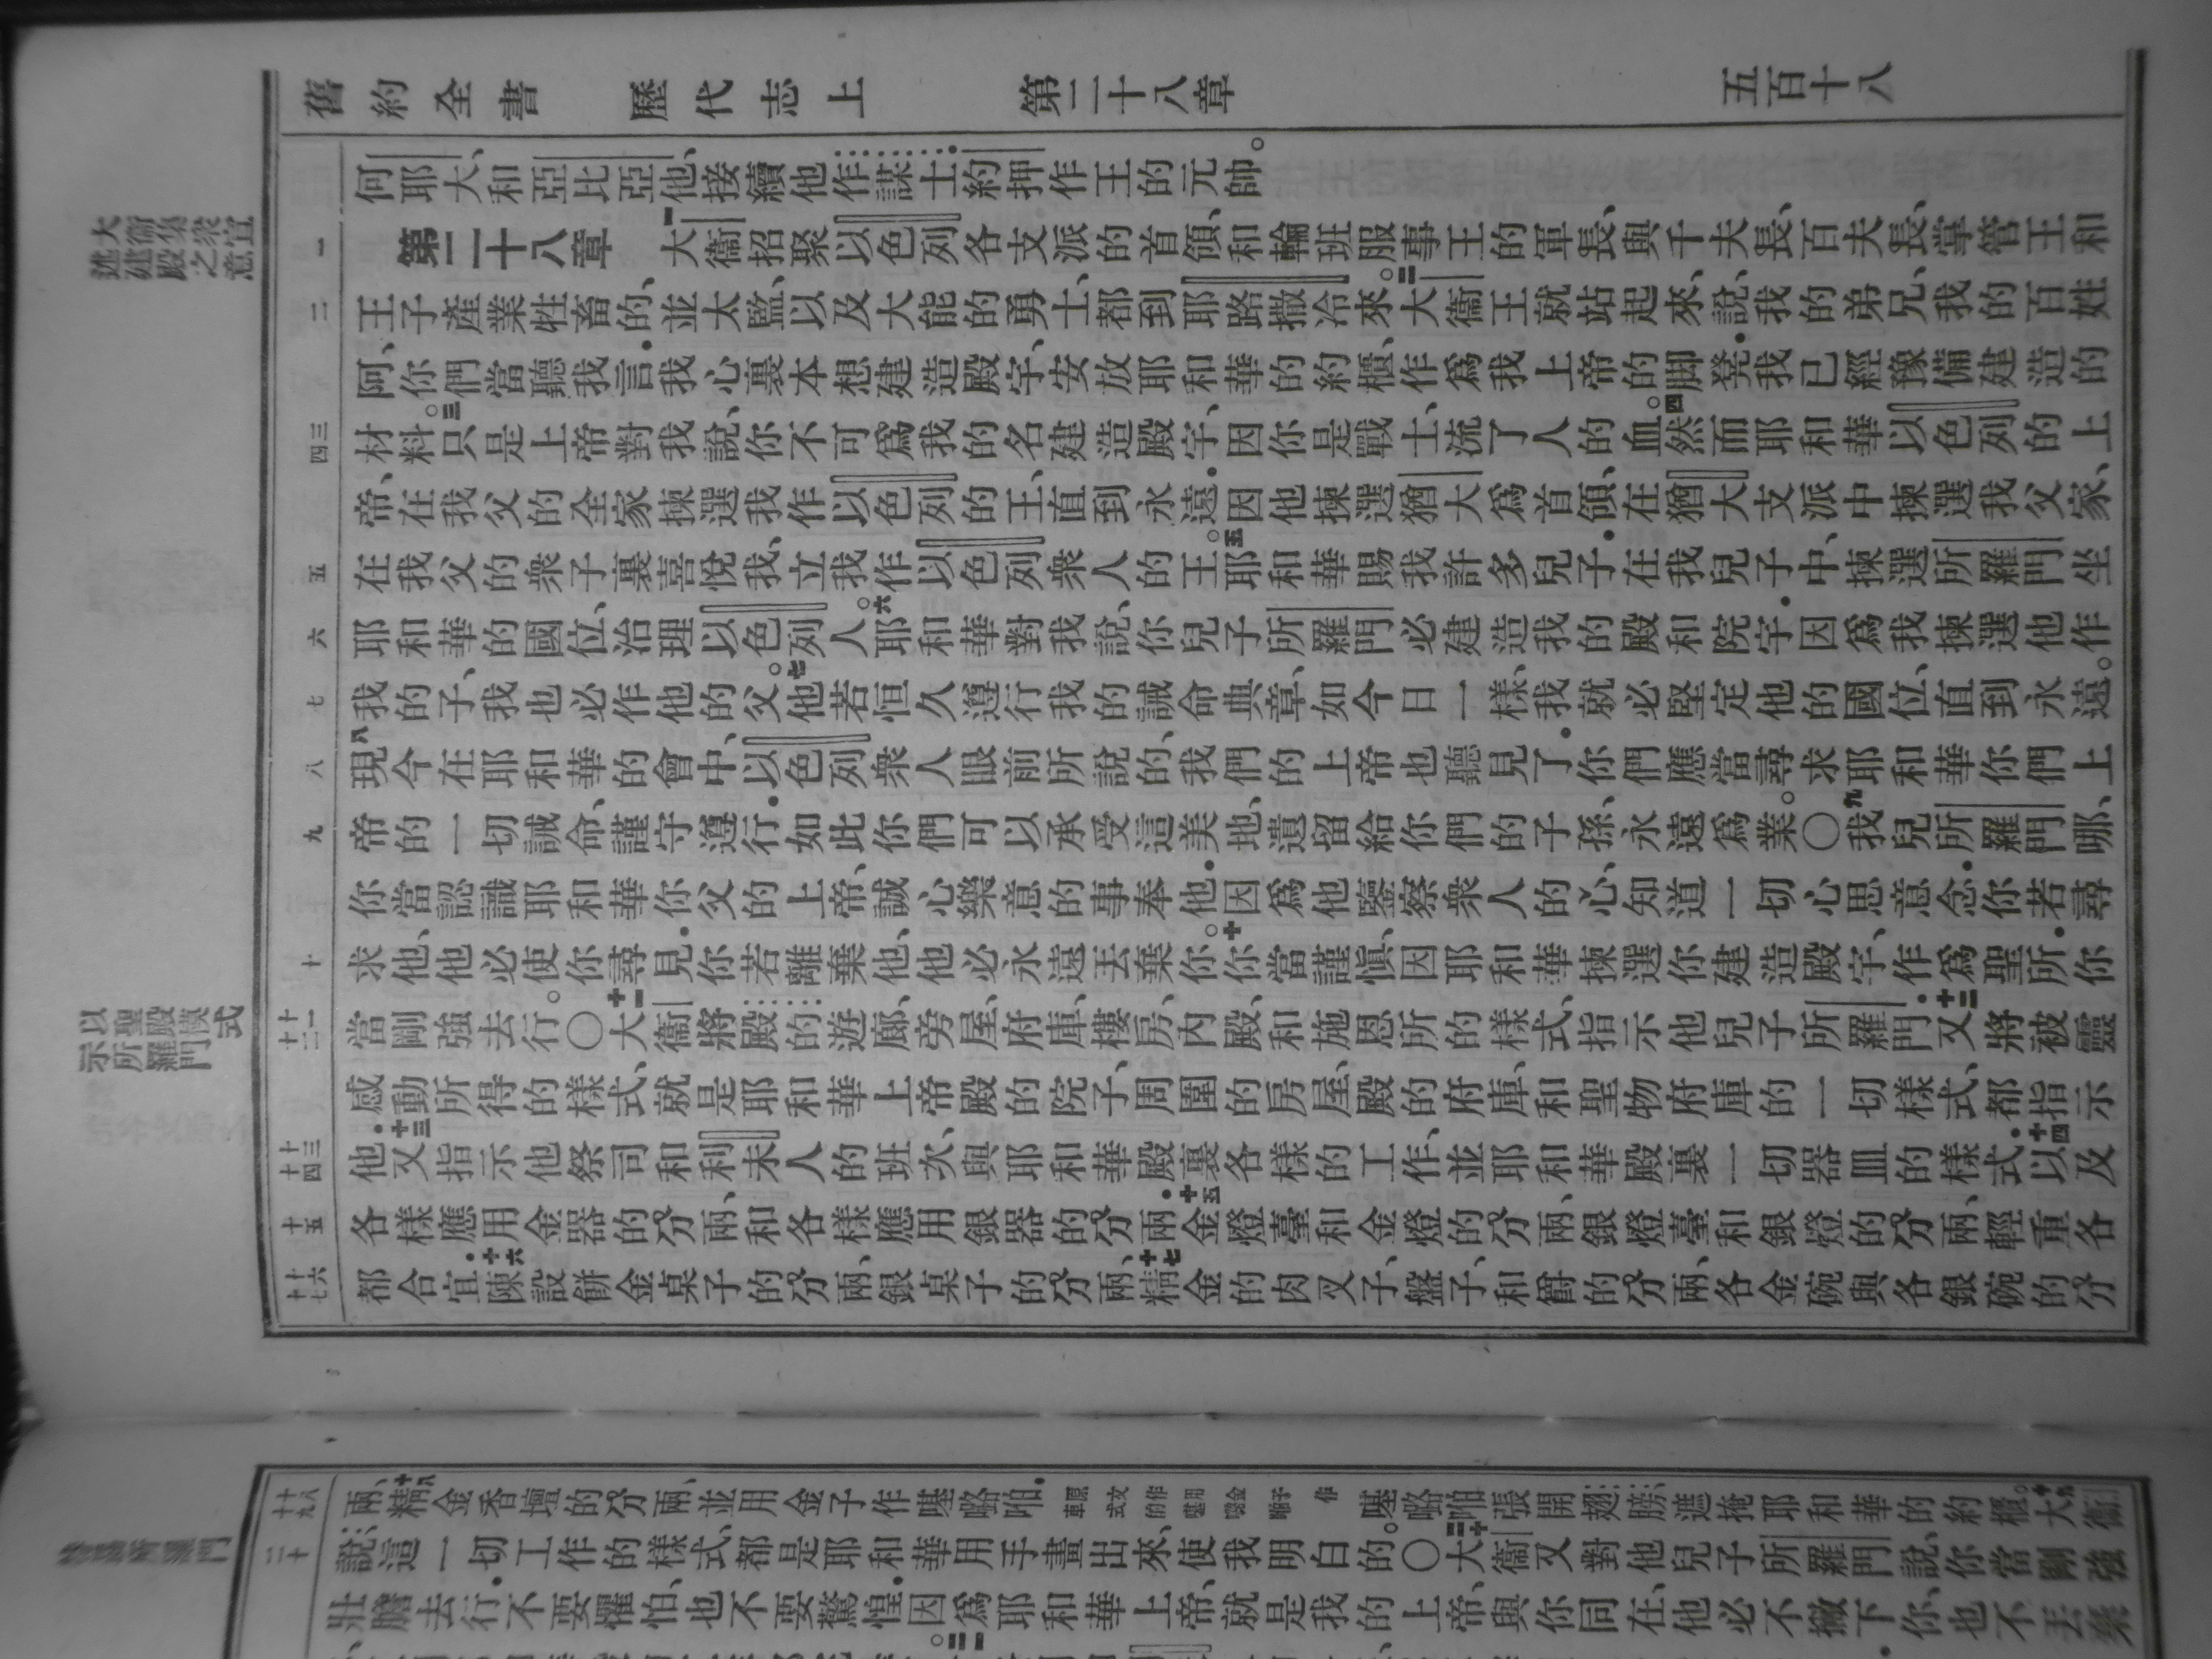 舊約全書 歷代志上 第二十八章 五百十八
何耶大、和亞比亞他、接續他作謀士、約押作王的元帥。
大衛集衆宣
述建殿之意
第二十八章 一大衛招聚以色列各支派的首領、和輪班服事王的軍長、與千夫長、百夫長、掌管王和
王子產業牲畜的、並太監、以及大能的勇士、都到耶路撒冷來。二大衛王就站起來、說、我的弟兄、我的百姓
阿、你們當聽我言．我心裏本想建造殿宇、安放耶和華的約櫃、作爲我上帝的脚凳．我已經豫備建造的
材料。三只是上帝對我說、你不可爲我的名建造殿宇、因你是戰士、流了人的血。四然而耶和華以色列的上
帝、在我父的全家揀選我作以色列的王、直到永遠．因他揀選猶大爲首領、在猶大支派中揀選我父家、
在我父的衆子裏喜悅我、立我作以色列衆人的王。五耶和華賜我許多兒子．在我兒子中、揀選所羅門坐
耶和華的國位、治理以色列人。六耶和華對我說、你兒子所羅門必建造我的殿和院宇．因爲我揀選他作
我的子、我也必作他的父。七他若恒久遵行我的誡命典章、如今日一樣、我就必堅定他的國位、直到永遠。
八現今在耶和華的會中、以色列衆人眼前所說的、我們的上帝也聽見了．你們應當尋求耶和華你們上
帝的一切誡命、謹守遵行．如此你們可以承受這美地、遺留給你們的子孫、永遠爲業。〇九我兒所羅門哪、
你當認識耶和華你父的上帝、誠心樂意的事奉他．因爲他鑒察衆人的心、知道一切心思意念．你若尋
求他、他必使你尋見．你若離棄他、他必永遠丟棄你。十你當謹愼、因耶和華揀選你建造殿宇、作爲聖所．你
以聖殿模式
示所羅門
當剛強去行。〇十一大衛將殿的遊廊、旁屋、府庫、樓房、內殿、和施恩所的樣式、指示他兒子所羅門．十二又將被靈
感動所得的樣式、就是耶和華上帝殿的院子、周圍的房屋、殿的府庫、和聖物府庫的一切樣式、都指示
他．十三又指示他祭司和利未人的班次、與耶和華殿裏各樣的工作、並耶和華殿裏一切器皿的樣式．十四以及
各樣應用金器的分兩、和各樣應用銀器的分兩．十五金燈臺和金燈的分兩、銀燈臺和銀燈的分兩、輕重各
都合宜．十六陳設餅金桌子的分兩、銀桌子的分兩、十七精金的肉叉子、盤子、和爵的分兩、各金碗與各銀碗的分
兩、十八精金香壇的分兩、並用金子作𠼻㗉啪．原文作用金子作車式的𠼻㗉啪張開翅膀、遮掩耶和華的約櫃。十九大衛
說：這一切工作的樣式、都是耶和華用手畫出來、使我明白的。〇二十大衛又對他兒子所羅門說、你當剛強
壯膽去行．不要懼怕、也不要驚惶．因爲耶和華上帝、就是我的上帝、與你同在、他必不撇下你、也不丟棄